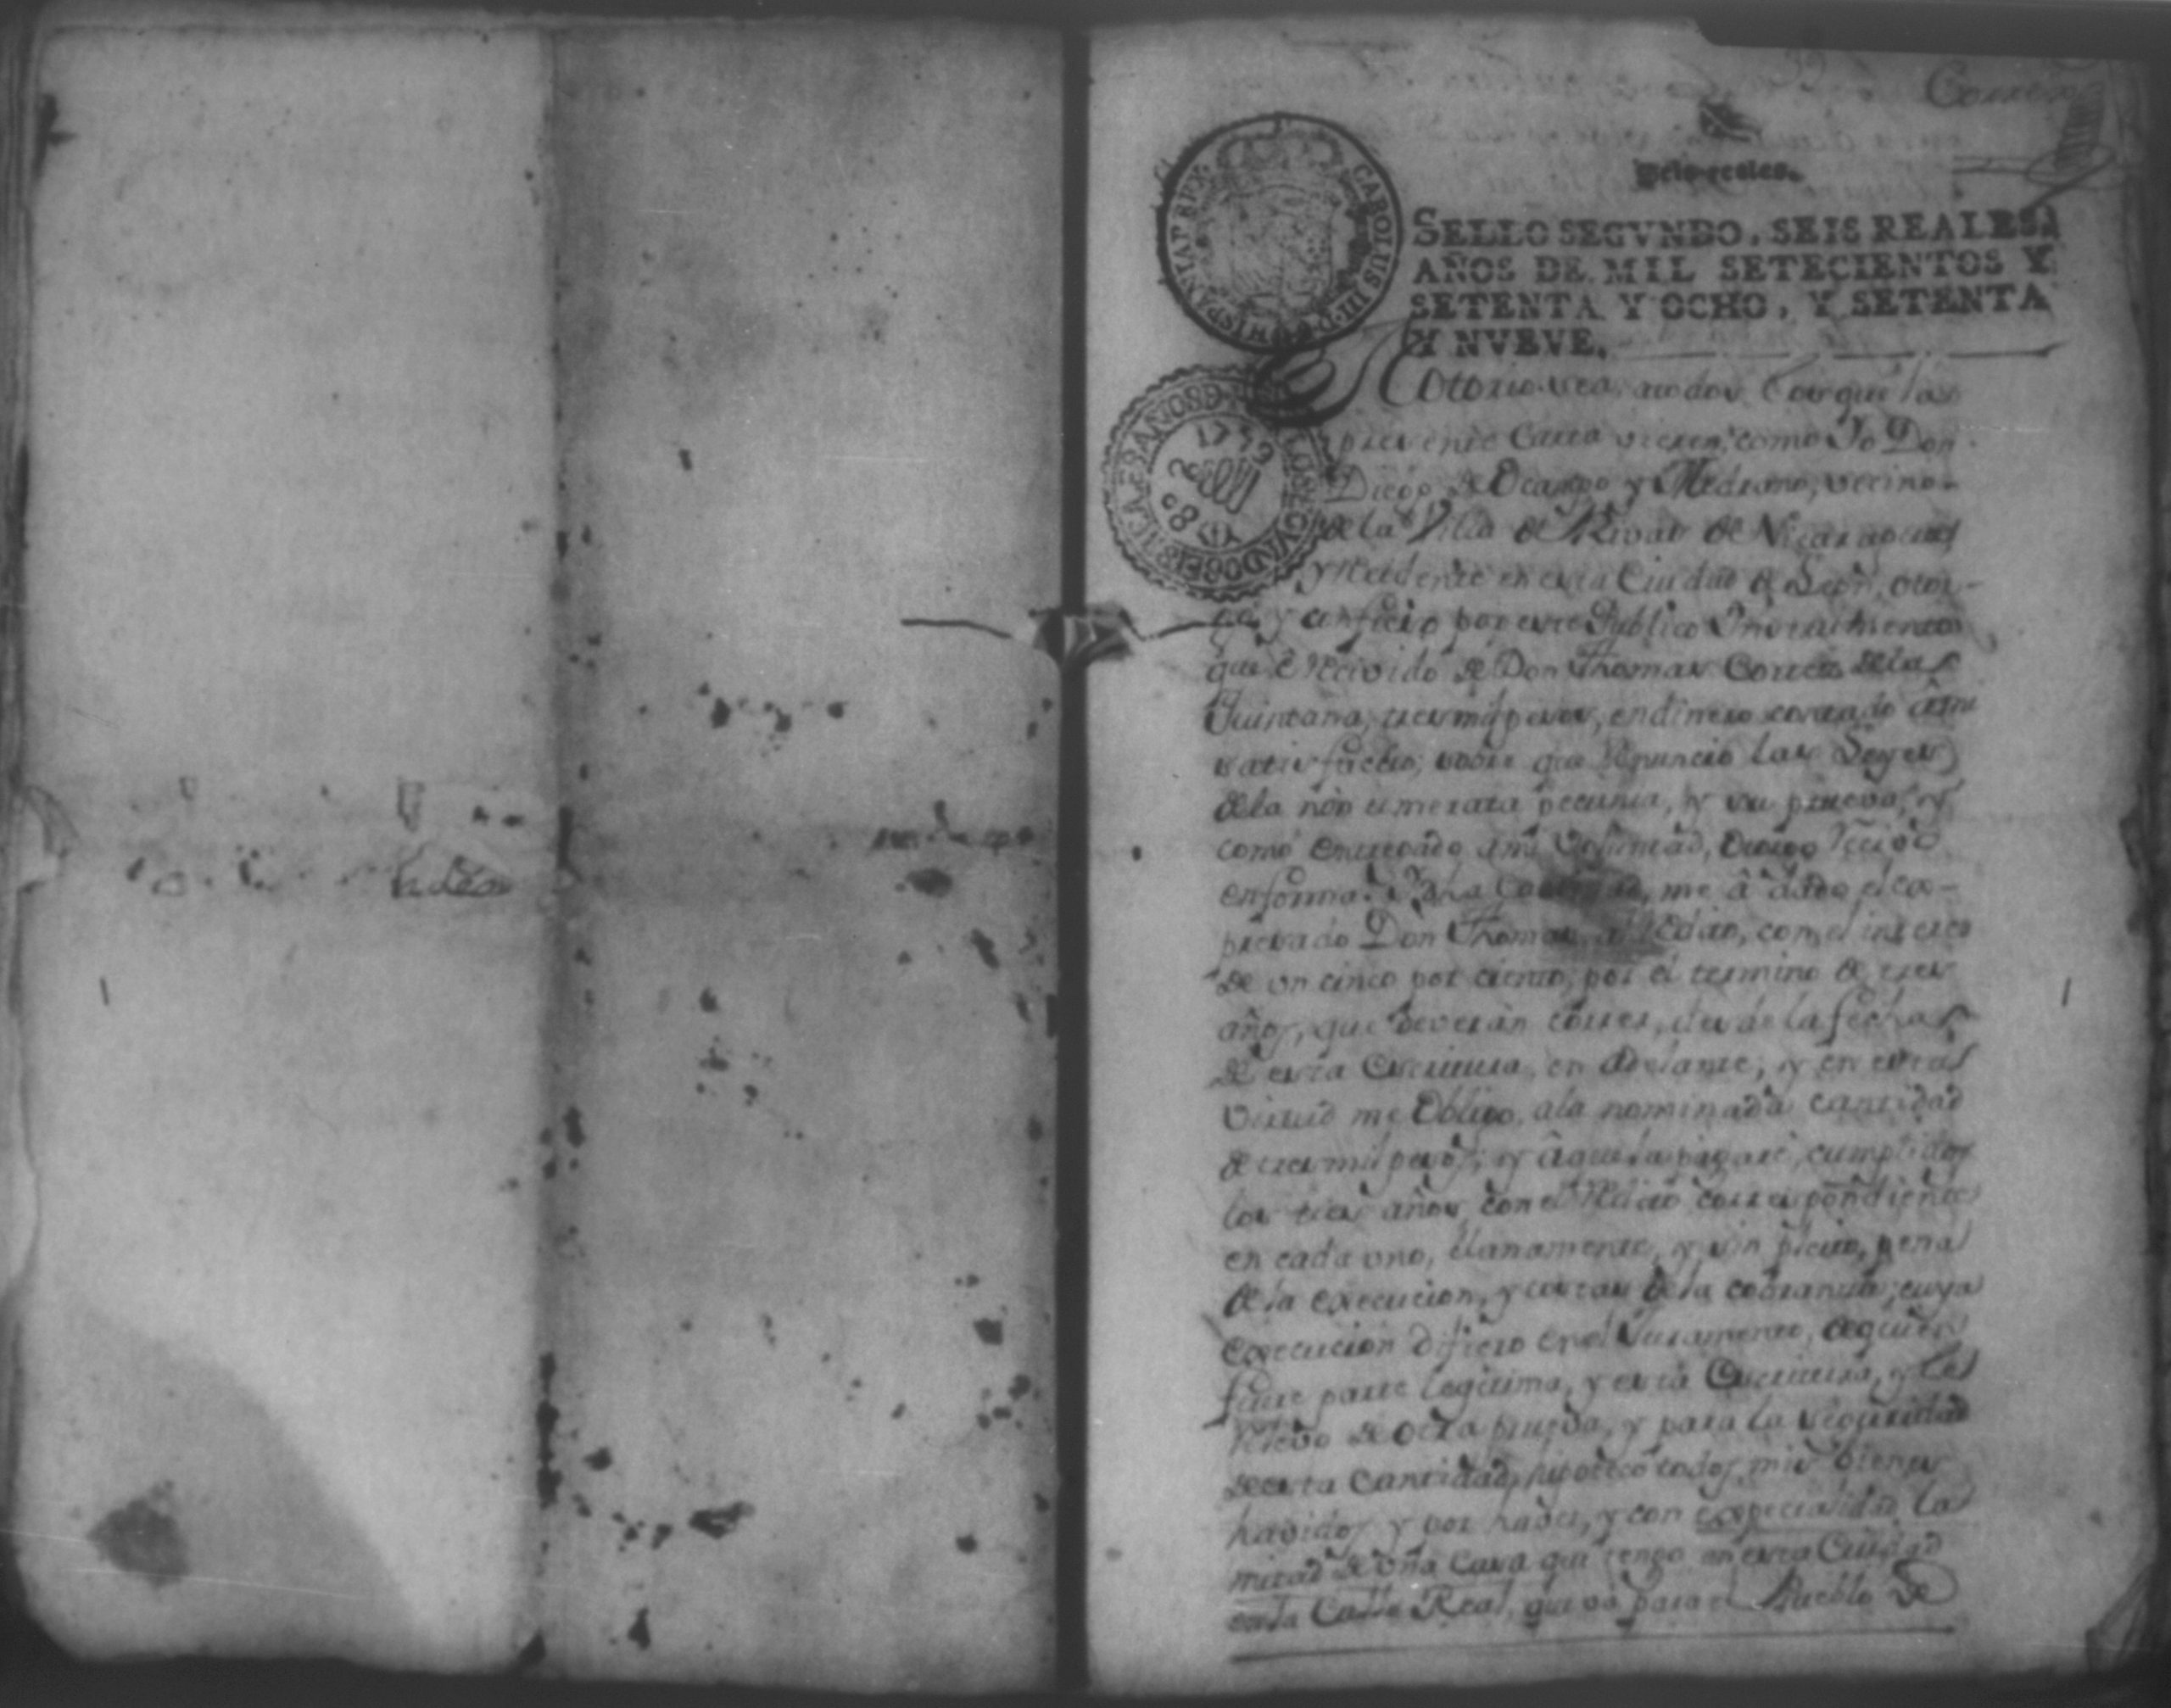 Seis reales.
SELLO SEGVNDO, SEIS REALES,
AÑOS DE MIL SETECIENTOS Y
SETENTA Y OCHO, Y SETENTA
Y NVEVE.
CAROLUS III D G HISPANIAR REX
Notorio sea, a todos los que la
presente Carta vieren, como Yo Don
Diego de Ocampo y Medrano, vecino
de la Villa de Rivas de Nicaragua,
y Residente en esta Ciudad de Leon, otor-
go, y confieso por este Publico Instrumento
que é recivido de Don Thomas Correa de la
Quintana, tres mil pesos, en dinero contado â mi
satisfaccion, sobre que renuncio las Leyes
de la non numerata pecunia, y su prueva, y
como entregado a mi Voluntad, otorgo recivo
en forma. me â dado el ex-
presado Don Thomas, a Redito, con el interes
de un cinco por ciento, por el termino de tres
años, que deverán correr, desde la fecha
de esta Escritura, en adelante; y en esta
virtud me Obligo, a la nominada cantidad
de tres mil pesos; y â que la pagaré, cumplidos
los tres años con el Redito correspondiente
en cada uno, llanamente, y sin pleito, pena
de la execucion, y costas de la cobranza; cuya
execucion difiero en el Juramento, de quien
fuere parte legitima, y esta Escritura, y le
relevo de otra prueva, y para la seguridad
de esta Cantidad, hipoteco todos mis bienes
havidos y por haver, y con expecialidad la
mitad de una Casa que tengo en esta Ciudad
en la Calle Real, que va para el Pueblo de